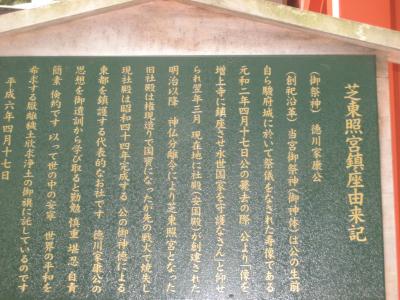 芝東照宮鎮座由来記
(御祭神) 徳川家康公
(創祀沿革) 当宮御祭神(御神体)は公の生前
自ら駿府城に於いて祭儀をなされた寿像である
元和二年四月十七日公の薨去の際 公より「像を
増上寺に鎮座させ永世国家を守護なさん」と仰せ
られ翌年二月 現在地に社殿(安国殿)が創建された
明治以降 神仏分離令により芝東照宮となった
旧社殿は権現造りで国宝になったが先の戦火で焼失し
現社殿は昭和四十四年完成する 公の御神徳による
東都を鎮護する代表的なお社です 徳川家康公の
思想を御遺訓から学び取ると勤勉 慎重 堪忍 自責
簡素 倹約です 以って世の中の安寧 世界の平和を
希求する厭離穢土欣求浄土の御旗に託しているのです
平成六年四月十七日